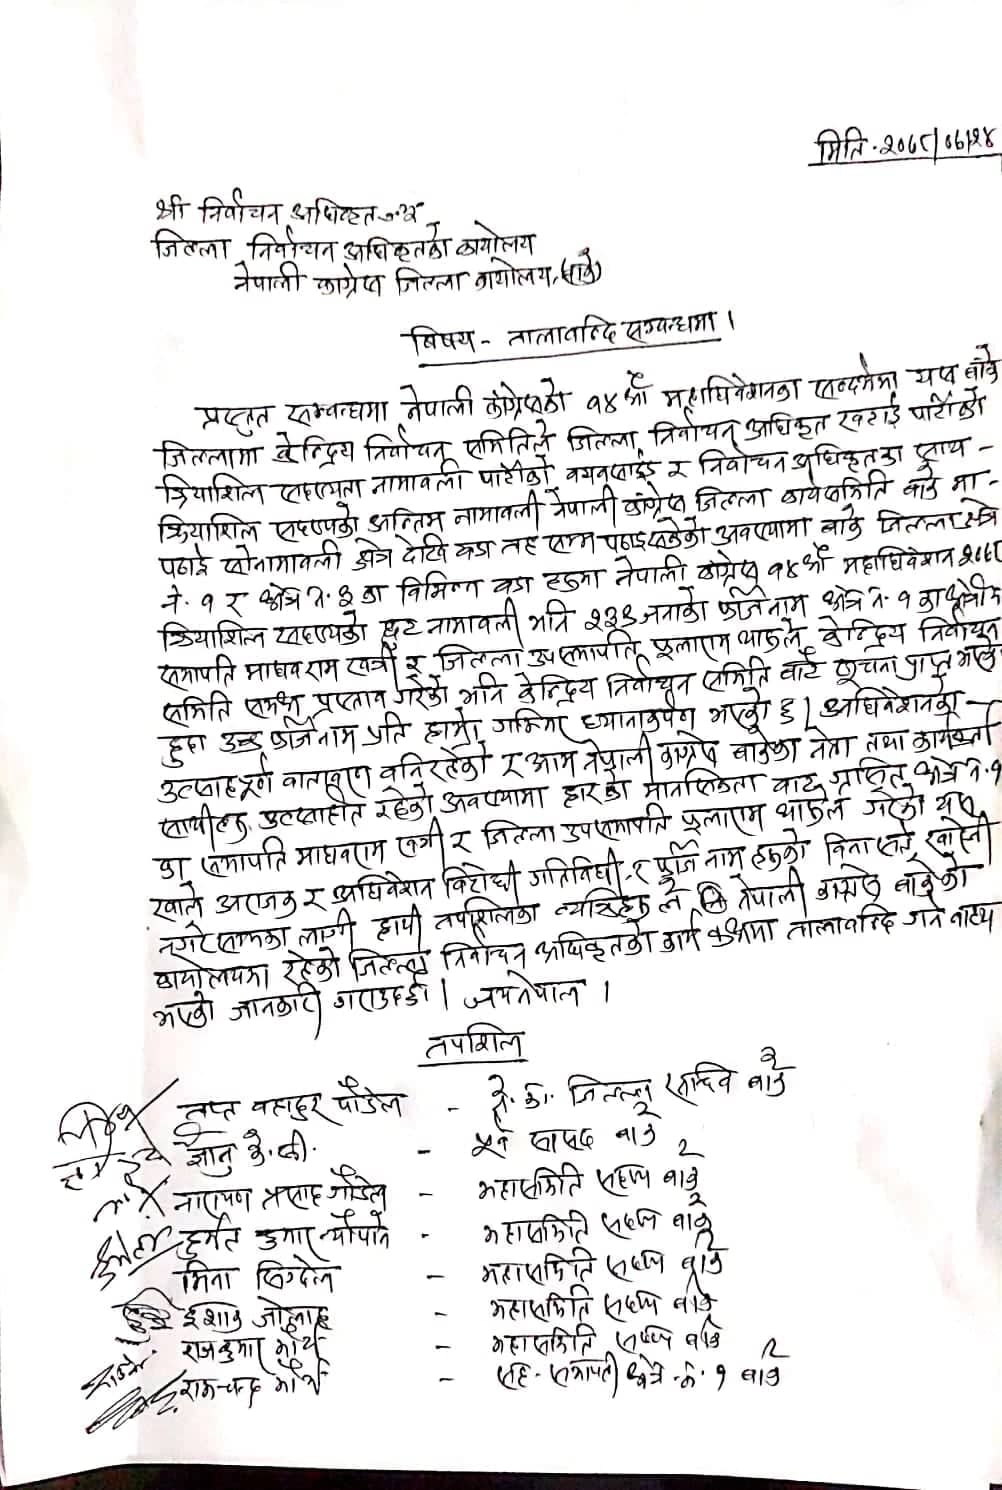 मिति-२०७८/०६/२४
श्री निर्वाचन अधिकृत ज्यू
जिल्ला निर्वाचन अधिकृतको कार्यालय
नेपाली काग्रेस जिल्ला कार्यालय, बाँके
बिषय - तालावन्दि सम्वन्धमा ।
प्रस्तुत सम्वन्धमा नेपाली काँग्रेसको १४औं महाधिवेशनका सन्दर्भमा यस बाँके
जिल्लामा केन्द्रिय निर्वाचन समितिले जिल्ला निर्वाचन अधिकृत खटाई पार्टीको
क्रियाशिल सदस्यता नामावली पार्टीको वेयवसाईड र निर्वाचन अधिकृतका साथ -
क्रियाशिल सदस्यको अन्तिम नामावली नेपाली काँग्रेस जिल्ला कार्यसमिति बाँके मा -
पठाई सोनामावली क्षेत्र देखि वडा तह सम्म पठाईसकेको अवस्थामा बाँके जिल्ला क्षेत्र
नं. १ र क्षेत्र नं. ३ का विभिन्न वडा हरुमा नेपाली काँग्रेस १४औं महाधिवेशन २०७८
क्रियाशिल सदस्यको छुट नामावली भनि २३९ जनाको फर्जि नाम क्षेत्र नं. १ का क्षेत्रीय
सभापति माधव राम खत्री र जिल्ला उपसभापति फुलाराम थारुले केन्द्रिय निर्वाचन
समिति समक्ष प्रस्ताव गरेको भनि केन्द्रिय निर्वाचन समिति बाट सूचना प्राप्त भएको
हुदा उक्त फर्जि नाम प्रति हाम्रो गम्भिर ध्यानाकर्षण भएको छ । अधिवेशनको -
उत्साहपूर्ण वातावरण वनिरहेको र आम नेपाली काग्रेस बाँकेका नेता तथा कार्यकर्ता
साथीहरु उत्साहीत रहेको अवस्थामा हारको मानसिकता वाट ग्रसित क्षेत्र नं. १
का सभापति माधवराम खत्री र जिल्ला उपसभापति फुलाराम थारुले गरेको यस
खाले अराजक र अधिवेशन विरोधी गतिविधी र फर्जि नाम हरुको विना सर्त खारेजी
नगरे सम्मका लागी हामी तपशिलका व्यक्तिहरु ले नेपाली काग्रेस बाँकेको
कार्यालयमा रहेको जिल्ला निर्वाचन अधिकृतको कार्य कक्षमा तालावन्दि गर्न वाध्य
भएको जानकारी गराउदछौं । जय नेपाल ।
तपशिल
तप्त वहादुर पौडेल - ने. का. जिल्ला सचिव बाँके
ज्ञानु के.सी. - पूर्व सासद बाँके
नारायण प्रसाद पौडेल - महासमिति सदस्य बाँके
हुमंत कुमार न्यौपाने - महासमिति सदस्य बाँके
मिना सिग्देल - महासमिति सदस्य बाँके
ईशाक जोलाहा - महासमिति सदस्य बाँके
राजकुमार मौर्य - महासमिति सदस्य बाँके
रामचन्द्र मौर्य - सह-सभापती क्षेत्र नं. १ बाँके